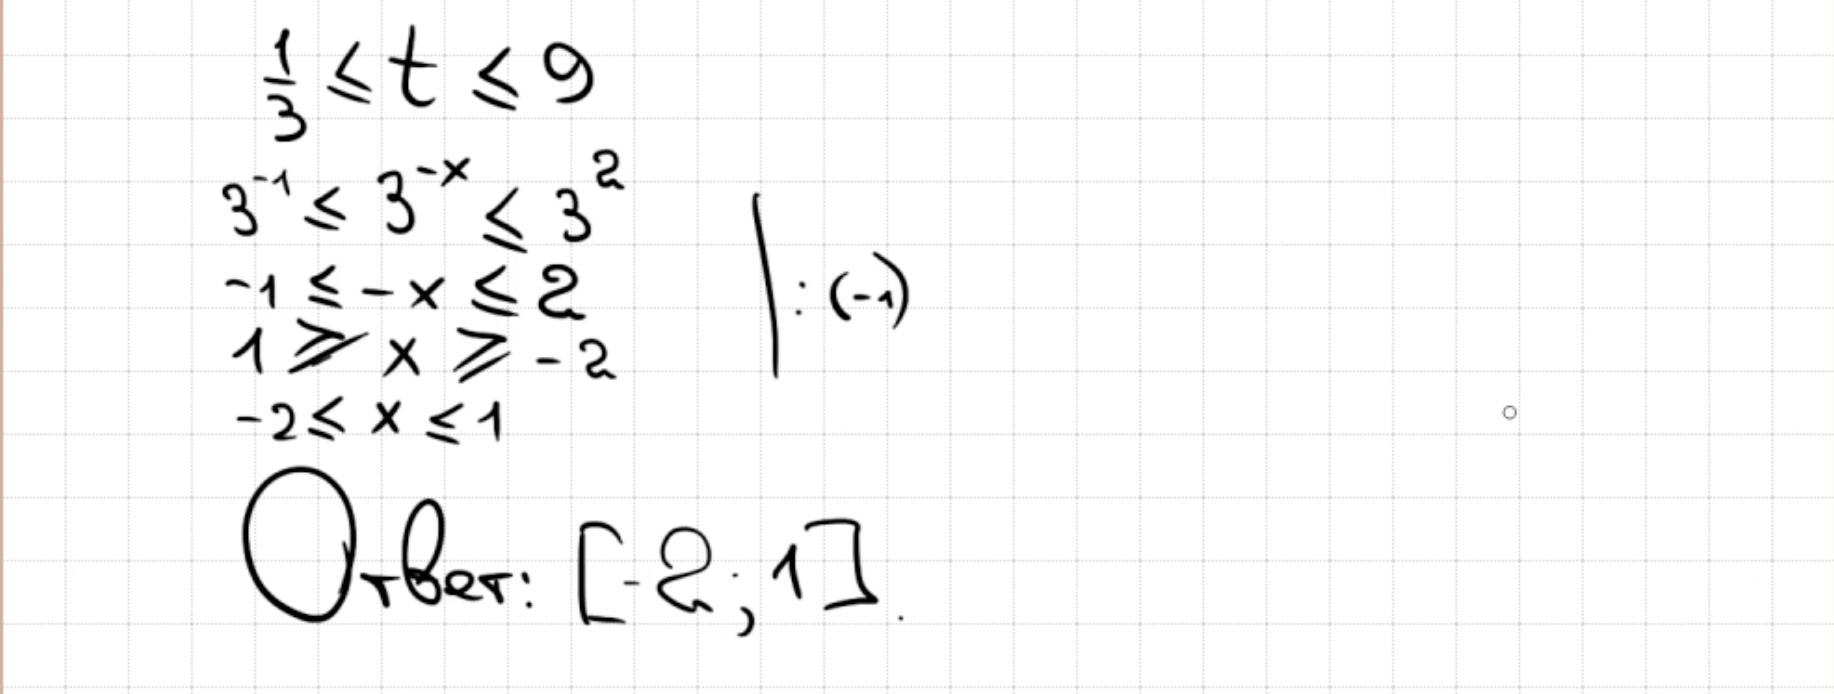 1/3 ≤ t ≤ 9
3^-1 ≤ 3^-x ≤ 3^2
-1 ≤ -x ≤ 2 | : (-1)
1 ≥ x ≥ -2
-2 ≤ x ≤ 1
Ответ: [-2; 1].